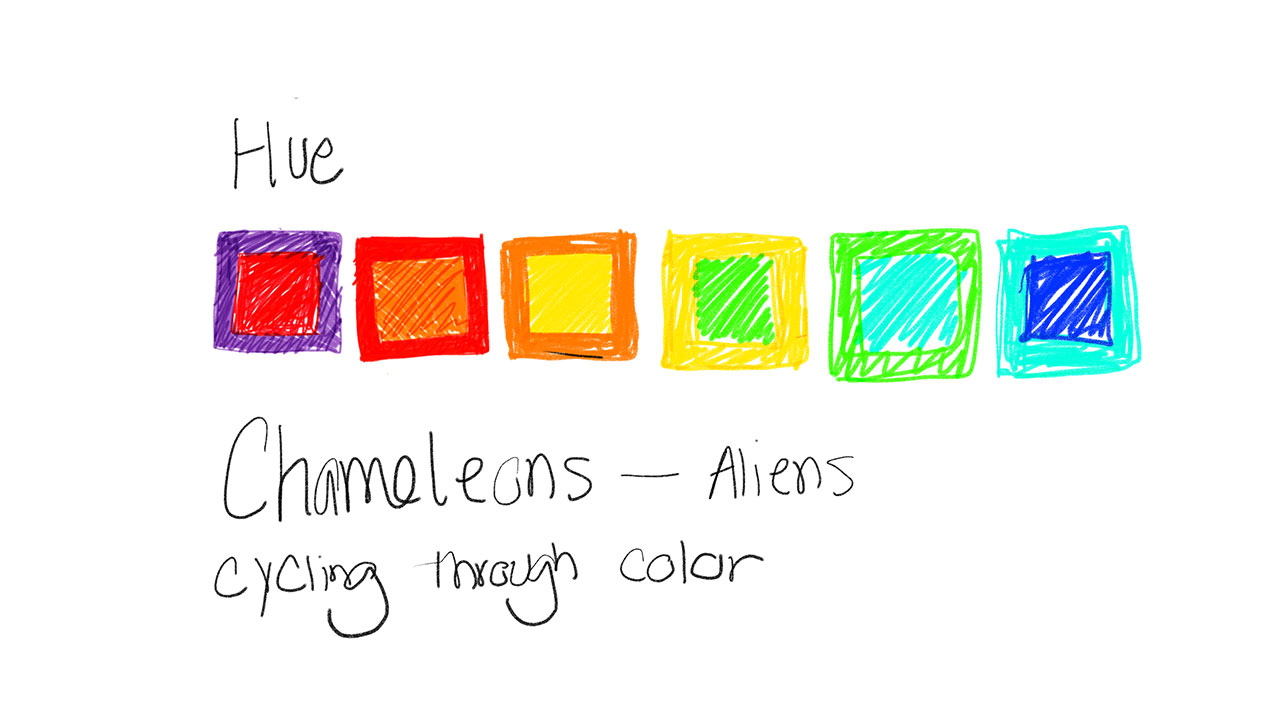 Hue
Chameleons — Aliens
cycling through color